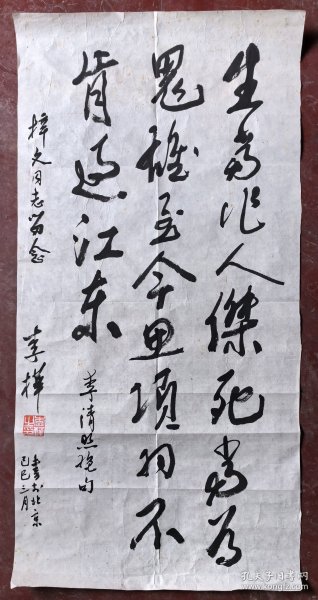 生当作人傑死当为
鬼雄至今思項羽不
肯过江东
李清照绝句
梓文同志留念
李樺
书于北京
己巳三月
孔夫子旧书网